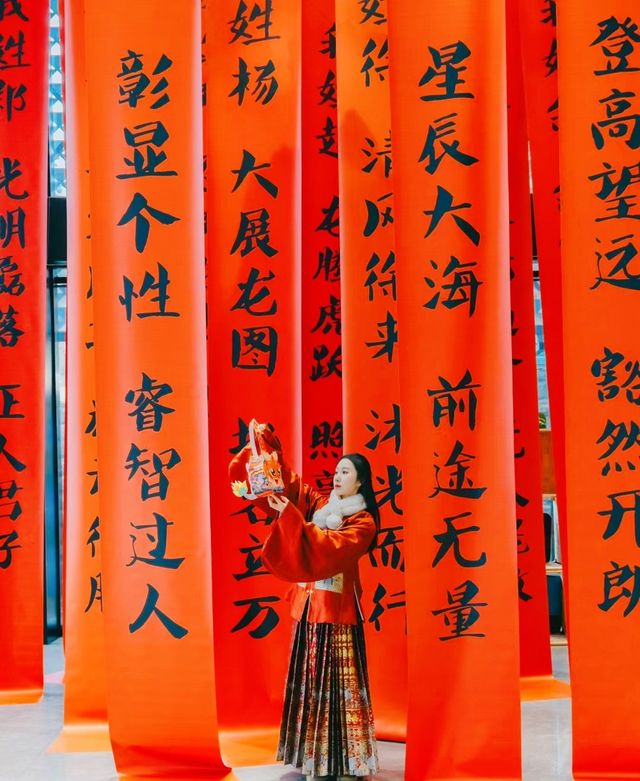 光明磊落 正人君子
彰显个性 睿智过人
姓杨 大展龙图 立万
龙腾虎跃 照
徐 清风徐来 沐光而行
星辰大海 前途无量
登高望远 豁然开朗